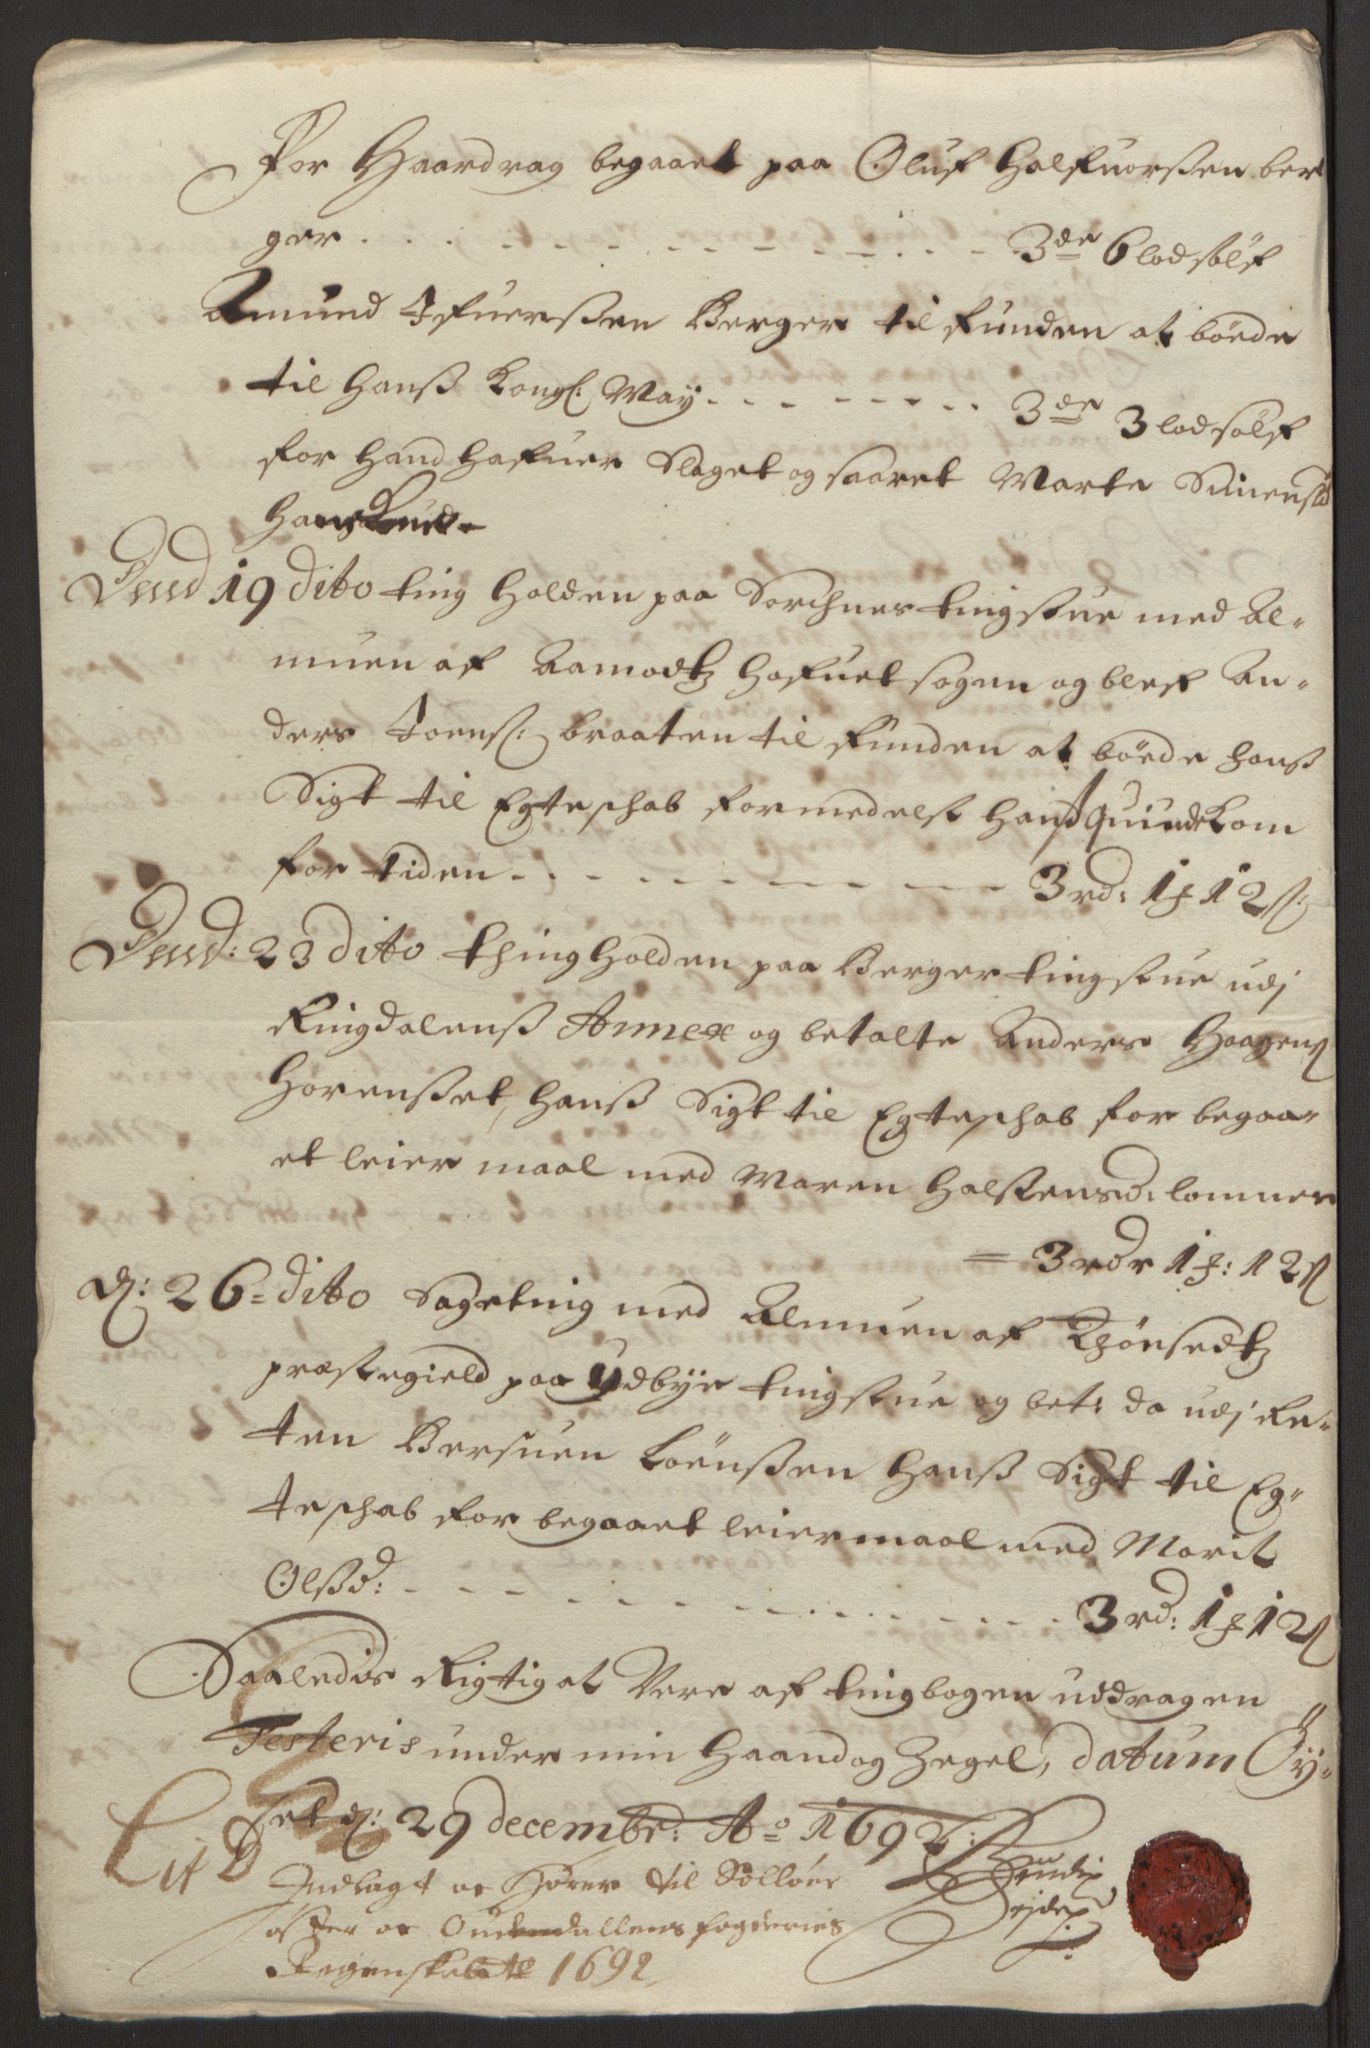 For Haardrag begaaet paa Oluf Halfuorßen ber
ger . . . . . . . . . . . . 3de 6 lod sölf
Amund Ifuerßen Berger til funden at böede
til Hanß Kongl: May. . . . . . . . . 3de 3 lod sölf
for Hand Hafuer Slaget og saaret Marte Simensd
Hans
Dend 19 dito ting Holden paa Sorchnes tingstue med Al-
muen af Aamodtz Hofuet sogen og blef An-
ders Joens: braaten til funden at böede hanß
Sigt til Egteschab formedelst Hanß Quinde kom
for tiden . . . . . . . . . . 3 rd: 1 ƒ 12 ß:
Dend: 23 dito thing Holden paa Berger tingstue udj
Ringdalenß Annex og betalte Anders Haagenß
Horenßet, Hanß Sigt til Egteschab for begaa-
et leiermaal med Maren Halstensd: lomner
= 3 rdr 1 ƒ: 12 ß
D: 26 dito Sageting med Almuen af Thönsedtz
præstegield paa Udbye tingstue og bet: da udj Re-
ten Bersuen Loënßen Hanß Sigt til Eg-
teschab for begaaet leiermaal med Marit
Olßd: . . . . . . . . . . . 3 rd: 1 ƒ 12 ß
Saaledis Rigtig at Vere af tingbogen uddragen
Testeris under min Haand og Zegel, datum Öy-
set d: 29 decembr: Ao 1692:
Lit D
Indlagt oc Hörer til Sollöer
oster oc Oudallens fogderies
Regenskab 1692